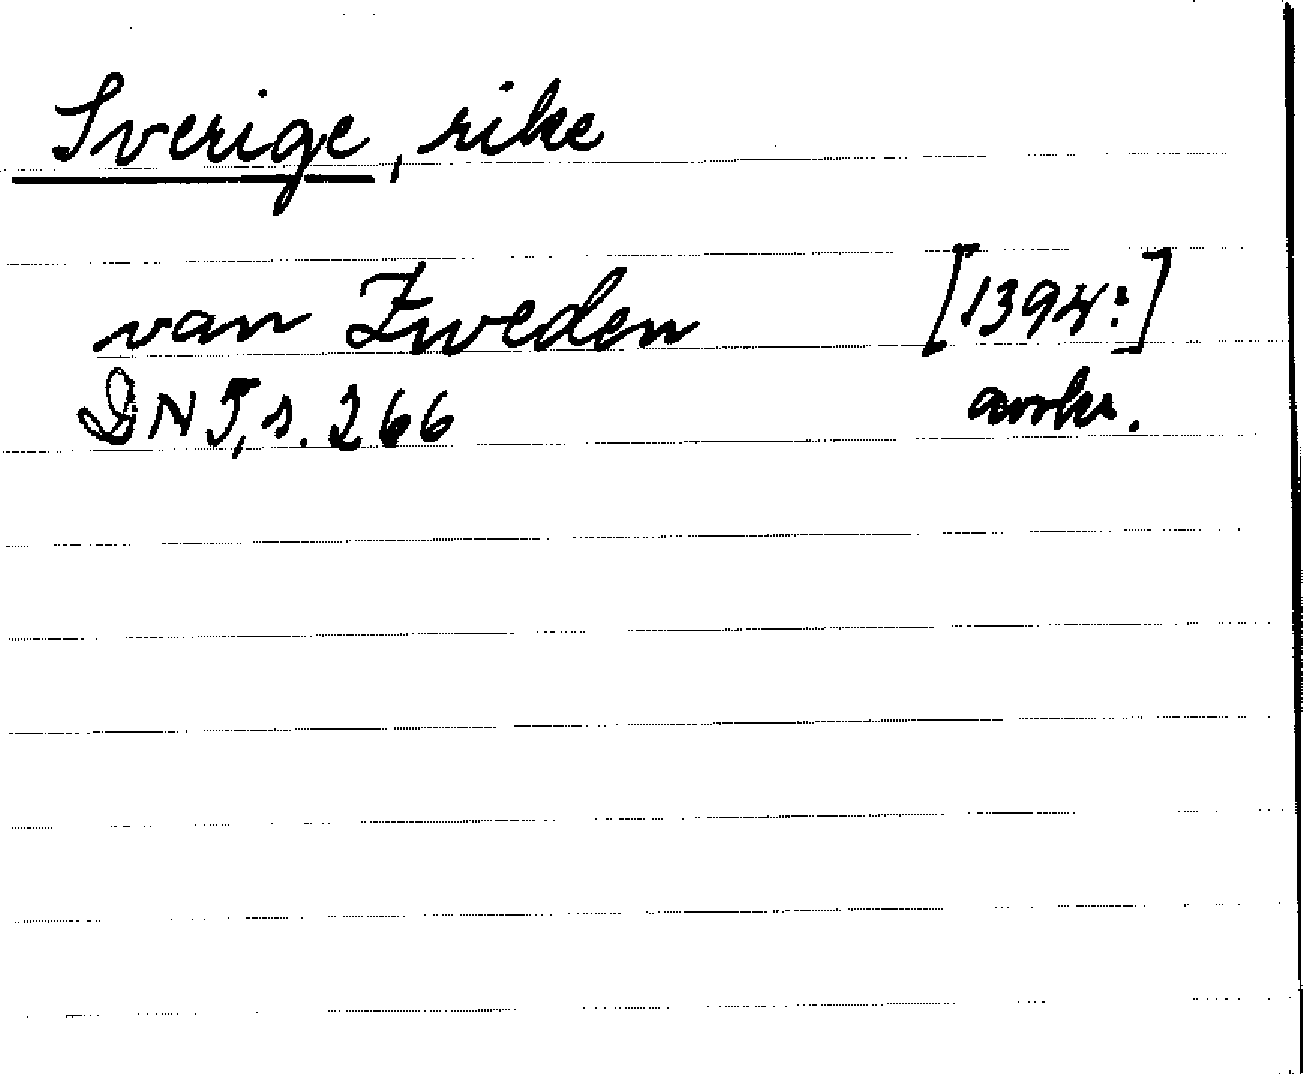 Sverige, rike
van Zweden [1394:]
DN 5, s. 266 avskr.